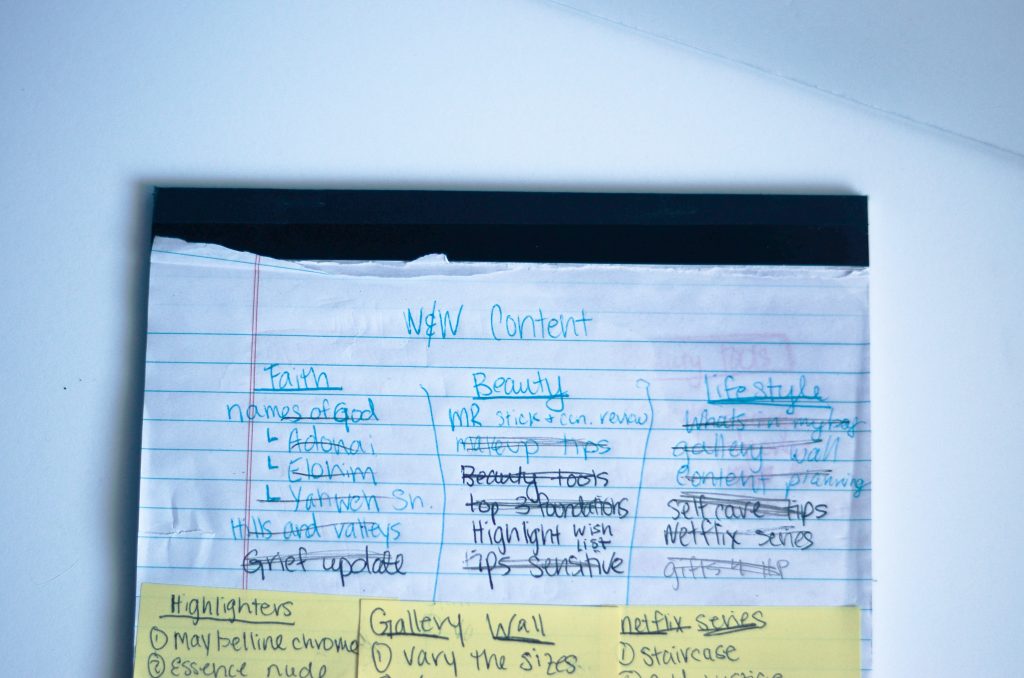 W&W Content
Faith
names of God
Adonai
Elohim
Yahweh Sh.
Hills and valleys
Grief update
Beauty
MR stick + con. review
makeup tips
Beauty tools
top 3 foundations
Highlight wish list
Tips sensitive
Lifestyle
Whats in my bag
gallery wall
Content planning
self care tips
Netflix series
gifts 4
Highlighters
① Maybelline chrome
② Essence nude
Gallery Wall
① vary the sizes
netflix series
① staircase